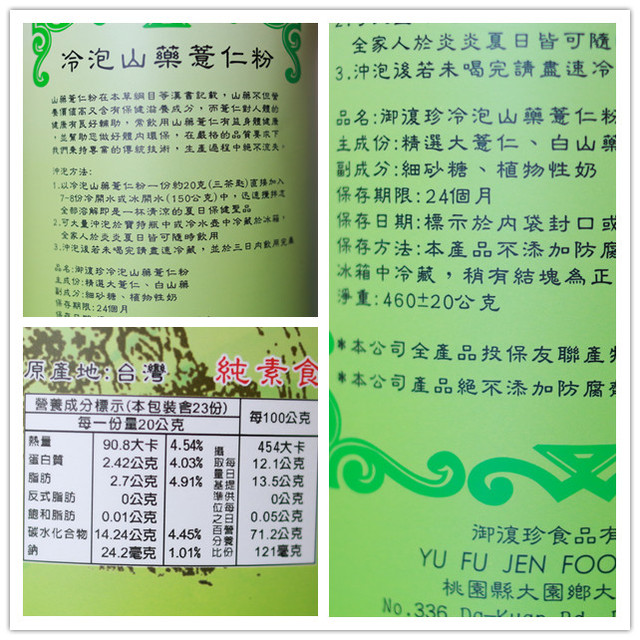 冷泡山藥薏仁粉
山藥薏仁粉在本草綱目等漢書記載，山藥不但營
養價值高又含有保健滋養成分，而薏仁對人體的
健康有良好輔助，常飲用山藥薏仁有益身體健康，
並幫助您做好體內環保，在嚴格的品質要求下
我們秉持專業的傳統技術，生產過程中絕不流失。
沖泡方法：
1.以冷泡山藥薏仁粉一份約20克(三茶匙)直接加入
7-8份冷開水或冰開水(150公克)中，迅速攪拌之
全部溶解即是一杯清涼的夏日保健聖品
2.可大量沖泡於寶特瓶中或冷水壺中冷藏於冰箱，
全家人於炎炎夏日皆可隨時飲用
3.沖泡後若未喝完請盡速冷藏，並於三日內飲用完畢
品名:御復珍冷泡山藥薏仁粉
主成份:精選大薏仁、白山藥
副成分:細砂糖、植物性奶
保存期限:24個月
全家人於炎炎夏日皆可隨
3.沖泡後若未喝完請盡速冷
品名:御復珍冷泡山藥薏仁粉
主成份:精選大薏仁、白山藥
副成分:細砂糖、植物性奶
保存期限:24個月
保存日期:標示於內袋封口或
保存方法:本產品不添加防腐
冰箱中冷藏，稍有結塊為正
淨重:460±20公克
*本公司全產品投保友聯產物
*本公司產品絕不添加防腐劑
御復珍食品有
YU FU JEN FOO
桃園縣大園鄉大
No.336 Da-Kuan Rd.
原產地:台灣 純素食
營養成分標示(本包裝含23份)
每一份量20公克 每100公克
熱量 90.8大卡 4.54% 454大卡
蛋白質 2.42公克 4.03% 12.1公克
脂肪 2.7公克 4.91% 13.5公克
反式脂肪 0公克 0公克
飽和脂肪 0.01公克 0.05公克
碳水化合物 14.24公克 4.45% 71.2公克
鈉 24.2毫克 1.01% 121毫克
攝取量基準值百分比